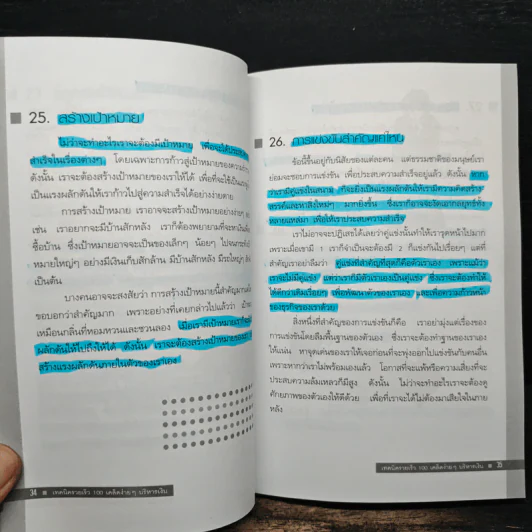 25. สร้างเป้าหมาย
ไม่ว่าจะทำอะไรเราจะต้องมีเป้าหมาย เพื่อจะได้ประสบ
สำเร็จในเรื่องต่างๆ โดยเฉพาะการก้าวสู่เป้าหมายของความ
ดังนั้น เราจะต้องสร้างเป้าหมายของเราให้ได้ เพื่อที่จะใช้เป็น
เป็นแรงผลักดันให้เราก้าวไปสู่ความสำเร็จได้อย่างง่ายดาย
การสร้างเป้าหมาย เราอาจจะสร้างเป้าหมายอย่าง
เช่น เราอยากจะมีบ้านสักหลัง เราก็ต้องพยายามที่จะ
ซื้อบ้าน ซึ่งเป้าหมายอาจจะเป็นของเล็กๆ น้อยๆ ไปจนกระทั่ง
หมายใหญ่ๆ อย่างมีเงินเก็บสักล้าน มีบ้านสักหลัง มีรถ
เป็นต้น
บางคนอาจจะสงสัยว่า การสร้างเป้าหมายนี้สำคัญ
ขอบอกว่าสำคัญมาก เพราะอย่างที่เคยกล่าวไปแล้วว่า
เหมือนกลิ่นที่หอมหวานและชวนลอง เมื่อเรามีเป้าหมาย
ผลักดันให้ไปถึงให้ได้ ดังนั้น เราจะต้องสร้างเป้าหมายของ
สร้างแรงผลักดันภายในตัวของเราเอง
34 เทคนิครวยเร็ว 100 เคล็ดง่ายๆ บริหารเงิน
26. การแข่งขันสำคัญแค่ไหน
ข้อนี้ขึ้นอยู่กับนิสัยของแต่ละคน แต่ธรรมชาติของมนุษย์เรา
ย่อมจะชอบการแข่งขัน เพื่อประสบความสำเร็จอยู่แล้ว ดังนั้น หาก
ว่าเรามีคู่แข่งในสนาม ก็จะยิ่งเป็นแรงผลักดันให้เรามีความคิดสร้าง
สรรค์และหาสิ่งใหม่ๆ มากยิ่งขึ้น ซึ่งเราก็อาจจะงัดเอากลยุทธ์ทั้ง
หลายแหล่มา เพื่อให้เราประสบความสำเร็จ
เราไม่อาจจะปฏิเสธได้เลยว่าคู่แข่งนั้นทำให้เรารุดหน้าไปมาก
เพราะเมื่อเขามี 1 เราก็จำเป็นจะต้องมี 2 ก็แข่งกันไปเรื่อยๆ แต่ที่
สำคัญเราอย่าลืมว่า คู่แข่งที่สำคัญที่สุดก็คือตัวเราเอง เพราะแม้ว่า
เราจะไม่มีคู่แข่ง แต่ว่าเราก็มีตัวเราเองเป็นคู่แข่ง ซึ่งเราจะต้องทำให้
ได้ดีกว่าเดิมเรื่อยๆ เพื่อพัฒนาตัวของเราเอง และเพื่อความก้าวหน้า
ของธุรกิจของเราด้วย
สิ่งหนึ่งที่สำคัญของการแข่งขันก็คือ เราอย่ามุ่งแต่เรื่องของ
การแข่งขันโดยลืมพื้นฐานของตัวเอง ซึ่งเราจะต้องทำฐานของเราเอง
ให้แน่น หาจุดเด่นของเราให้เจอก่อนที่จะพุ่งออกไปแข่งขันกับคนอื่น
เพราะหากว่าเราไม่พร้อมเองแล้ว โอกาสที่จะแพ้หรือความเสี่ยงที่จะ
ประสบความล้มเหลวก็มีสูง ดังนั้น ไม่ว่าจะทำอะไรเราจะต้องดู
ศักยภาพของตัวเองให้ดีด้วย เพื่อที่เราจะได้ไม่ต้องมาเสียใจในภาย
หลัง
เทคนิครวยเร็ว 100 เคล็ดง่ายๆ บริหารเงิน 35